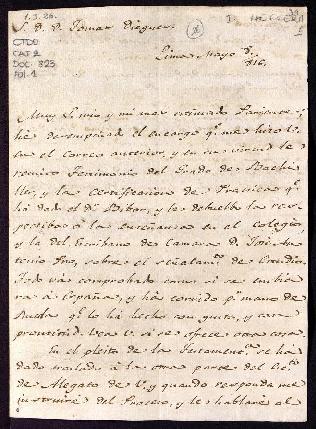 1.3.26.
S. D. D. Tomas Dieguez.
CTDD
CAT 2
DOC: 823
FOL: 1
Lima y Mayo
816.
Muy S. mio y mi mas estimado Pariente:
há desempeñado el encargo q.e me hizo V.
en el Correo anterior, y en su virtud le
remito Testimonio del Grado de Bachi-
ller, y la Certificacion de Practica q.e
há dado el D.r Bibar, y le debuelbo la res-
pectiva á la enseñanza en el Colegio,
y la del Escribano de Camara D. José An-
tonio sobre el señalam.to de Estudios.
Todo vá comprobado como si se embia-
ra á España, y há corrido p.r mano de
q.e lo há hecho con gusto, y con
prontitud. Vea V. si se ofrece otra cosa.
En el pleito de la Testament.a se há
dado traslado á la otra parte del
de Alegato de V. y quando responda me
instruiré del Proceso, y le hablaré al